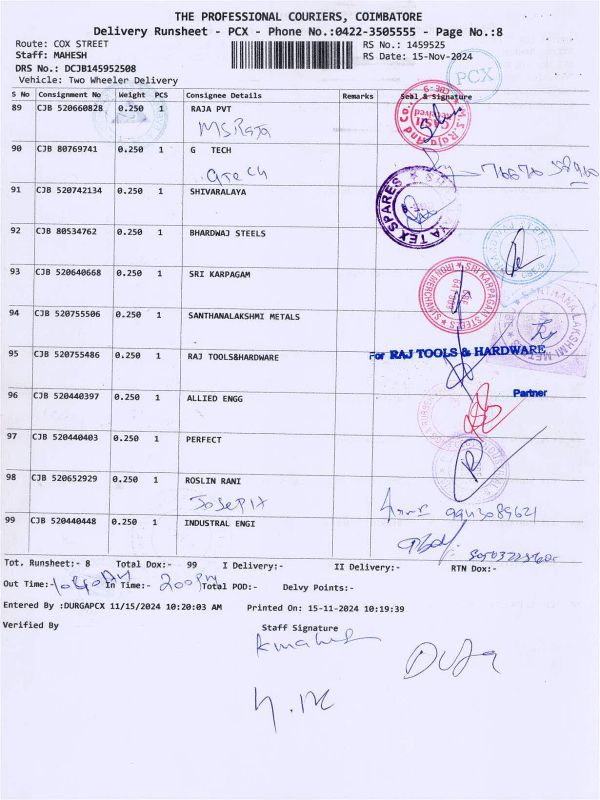 THE PROFESSIONAL COURIERS, COIMBATORE
Delivery Runsheet - PCX - Phone No.:0422-3505555 - Page No.:8
Route: COX STREET RS No.: 1459525
Staff: MAHESH RS Date: 15-Nov-2024
DRS No.: DCJB145952508
Vehicle: Two Wheeler Delivery
PCX
S No Consignment No Weight PCS Consignee Details Remarks Seal & Signature
89 CJB 520660828 0.250 1 RAJA PVT
M.S.Raja
90 CJB 80769741 0.250 1 G TECH
GTech
91 CJB 520742134 0.250 1 SHIVARALAYA
TEX SPARES
92 CJB 80534762 0.250 1 BHARDWAJ STEELS
93 CJB 520640668 0.250 1 SRI KARPAGAM
SRI KARPAGAM STEELS
IRON MERCHANTS
94 CJB 520755506 0.250 1 SANTHANALAKSHMI METALS
SANTHANALAKSHMI METALS
95 CJB 520755486 0.250 1 RAJ TOOLS&HARDWARE
For RAJ TOOLS & HARDWARE
Partner
96 CJB 520440397 0.250 1 ALLIED ENGG
97 CJB 520440403 0.250 1 PERFECT
98 CJB 520652929 0.250 1 ROSLIN RANI
Joseph
99 CJB 520440448 0.250 1 INDUSTRAL ENGI
Tot. Runsheet:- 8 Total Dox:- 99 I Delivery:- II Delivery:- RTN Dox:-
Out Time:- In Time:- 200PM Total POD:- Delvy Points:-
Entered By :DURGAPCX 11/15/2024 10:20:03 AM Printed On: 15-11-2024 10:19:39
Verified By Staff Signature